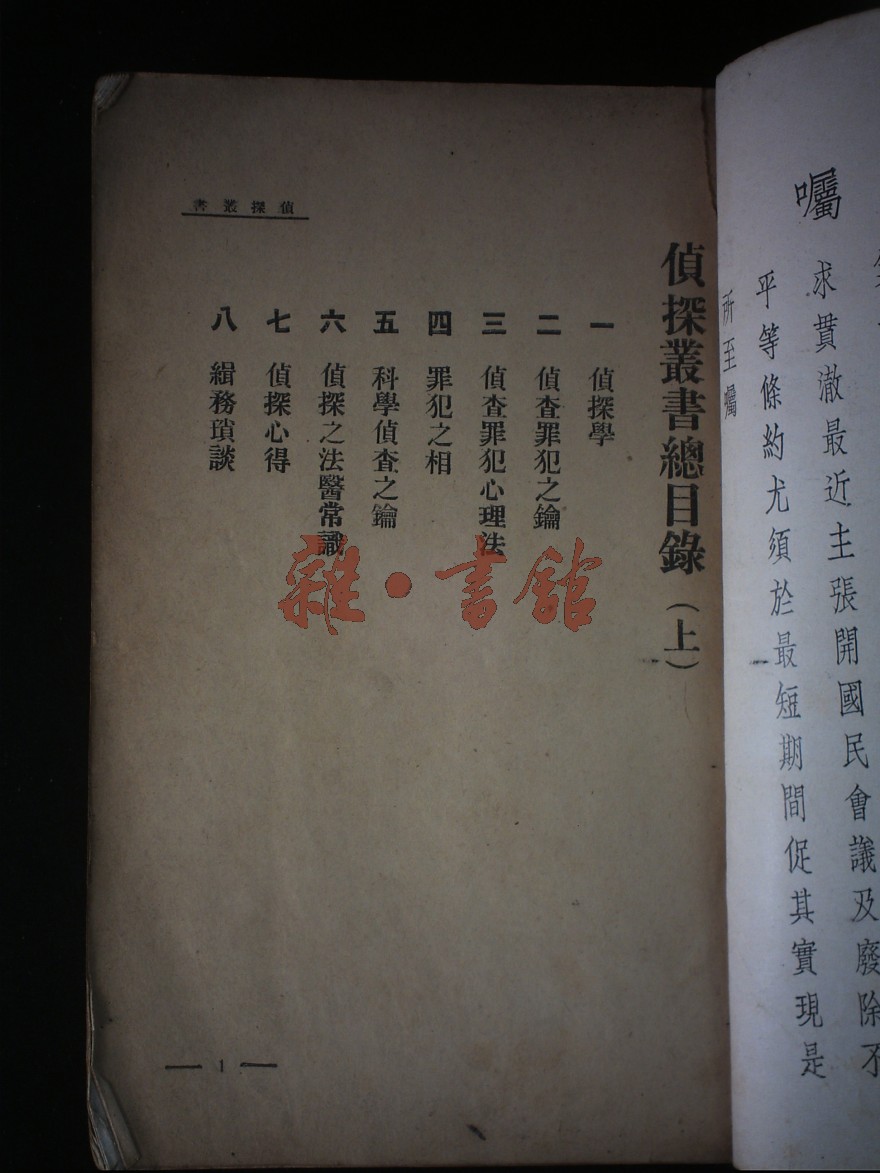 囑
求貫澈最近主張開國民會議及廢除不
平等條約尤須於最短期間促其實現是
所至囑
偵探叢書總目錄（上）
一 偵探學
二 偵查罪犯之鑰
三 偵查罪犯心理法
四 罪犯之相
五 科學偵查之鑰
六 偵探之法醫常識
七 偵探心得
八 緝務瑣談
偵探叢書
1
雜·書館